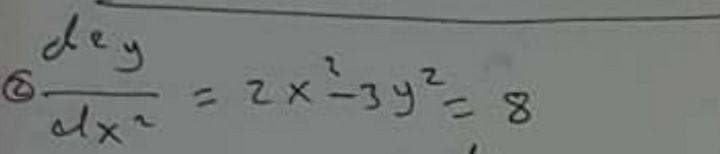 ② d²y/dx² = 2x² - 3y² = 8